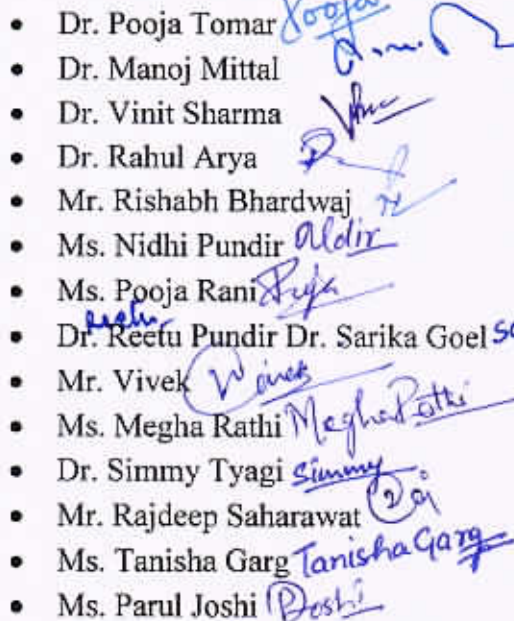 • Dr. Pooja Tomar Pooja
• Dr. Manoj Mittal
• Dr. Vinit Sharma
• Dr. Rahul Arya
• Mr. Rishabh Bhardwaj
• Ms. Nidhi Pundir
• Ms. Pooja Rani
• Dr. Reetu Pundir Dr. Sarika Goel
• Mr. Vivek Vivek
• Ms. Megha Rathi Megha Rathi
• Dr. Simmy Tyagi Simmy
• Mr. Rajdeep Saharawat
• Ms. Tanisha Garg Tanisha Garg
• Ms. Parul Joshi PJoshi